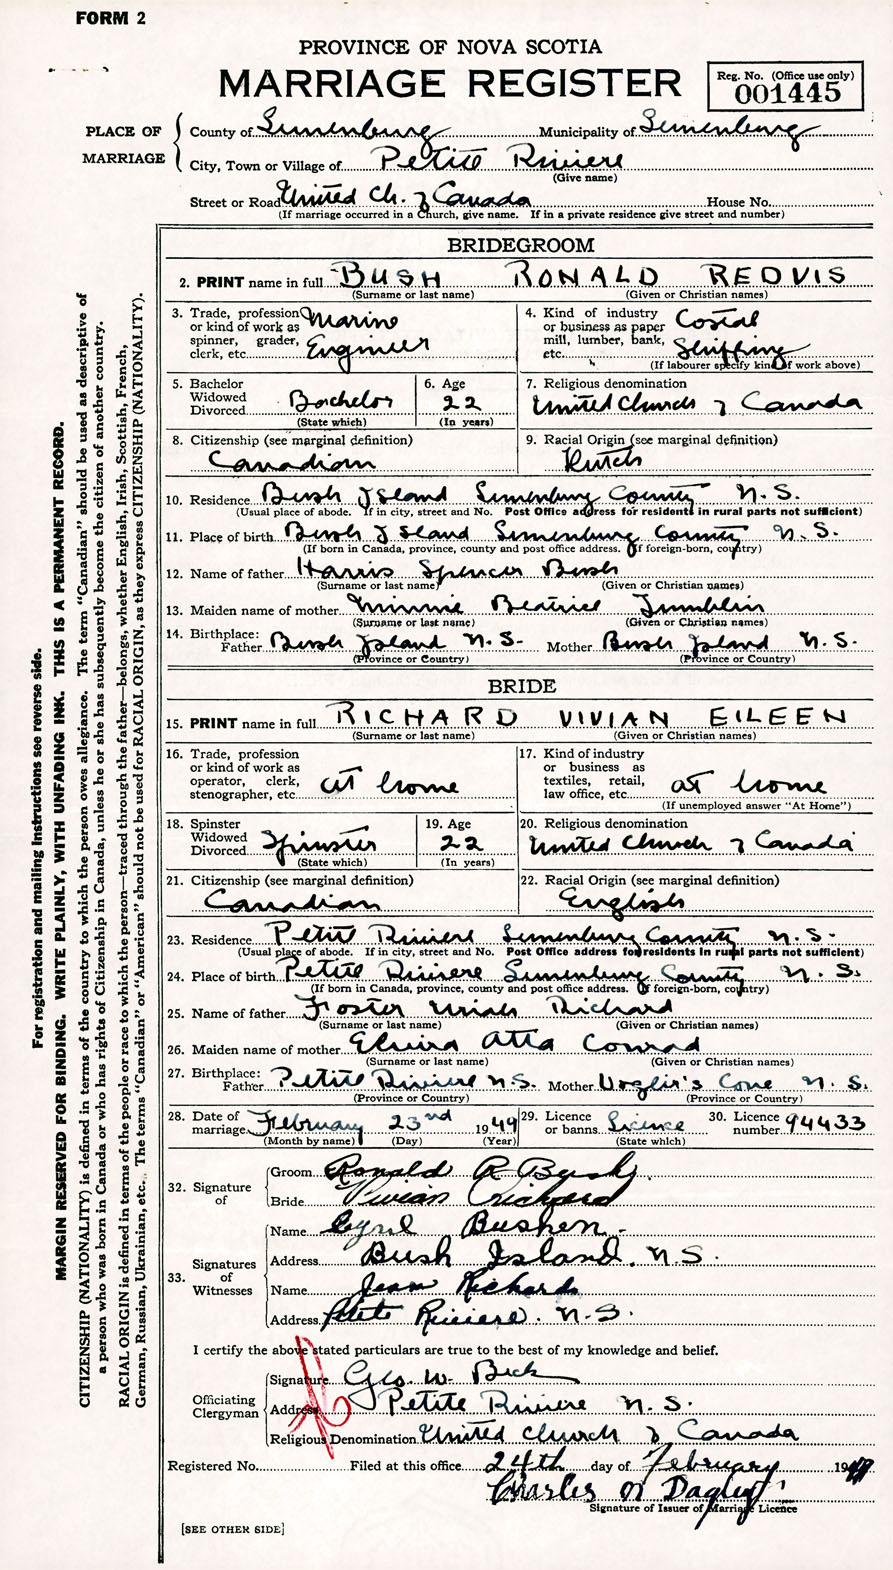 FORM 2
PROVINCE OF NOVA SCOTIA
MARRIAGE REGISTER
Reg. No. (Office use only)
001445
PLACE OF MARRIAGE
County of Lunenburg Municipality of Lunenburg
City, Town or Village of Petite Riviere
(Give name)
Street or Road United Ch. of Canada House No.
(If marriage occurred in a Church, give name. If in a private residence give street and number)
BRIDEGROOM
2. PRINT name in full BUSH RONALD REDVIS
(Surname or last name) (Given or Christian names)
3. Trade, profession or kind of work as spinner, grader, clerk, etc. Marine Engineer
4. Kind of industry or business as paper mill, lumber, bank, etc. Costal Shipping
(If labourer specify kind of work above)
5. Bachelor Widowed Divorced Bachelor
(State which)
6. Age 22
(In years)
7. Religious denomination
United Church of Canada
8. Citizenship (see marginal definition)
Canadian
9. Racial Origin (see marginal definition)
Dutch
10. Residence Bush Island Lunenburg County N.S.
(Usual place of abode. If in city, street and No. Post Office address for residents in rural parts not sufficient)
11. Place of birth Bush Island Lunenburg County N.S.
(If born in Canada, province, county and post office address. If foreign-born, country)
12. Name of father Harris Spencer Bush
(Surname or last name) (Given or Christian names)
13. Maiden name of mother Minnie Beatrice Tumblin
(Surname or last name) (Given or Christian names)
14. Birthplace: Father Bush Island N.S. Mother Bush Island N.S.
(Province or Country) (Province or Country)
BRIDE
15. PRINT name in full RICHARD VIVIAN EILEEN
(Surname or last name) (Given or Christian names)
16. Trade, profession or kind of work as operator, clerk, stenographer, etc. at home
17. Kind of industry or business as textiles, retail, law office, etc. at home
(If unemployed answer "At Home")
18. Spinster Widowed Divorced Spinster
(State which)
19. Age 22
(In years)
20. Religious denomination
United Church of Canada
21. Citizenship (see marginal definition)
Canadian
22. Racial Origin (see marginal definition)
English
23. Residence Petite Riviere Lunenburg County N.S.
(Usual place of abode. If in city, street and No. Post Office address for residents in rural parts not sufficient)
24. Place of birth Petite Riviere Lunenburg County N.S.
(If born in Canada, province, county and post office address. If foreign-born, country)
25. Name of father Foster Uriah Richard
(Surname or last name) (Given or Christian names)
26. Maiden name of mother Elvira Atta Conrad
(Surname or last name) (Given or Christian names)
27. Birthplace: Father Petite Riviere N.S. Mother Voglir's Cove N.S.
(Province or Country) (Province or Country)
28. Date of marriage February 23rd 1949
(Month by name) (Day) (Year)
29. Licence or banns Licence
(State which)
30. Licence number 94433
32. Signature of
Groom Ronald R Bush
Bride Vivian Richard
33. Signatures of Witnesses
Name Cyril Bushen
Address Bush Island. N.S.
Name Jean Richard
Address Petite Riviere. N.S.
I certify the above stated particulars are true to the best of my knowledge and belief.
Officiating Clergyman
Signature Geo. W. Beck
Address Petite Riviere N.S.
Religious Denomination United Church of Canada
Registered No. Filed at this office 24th day of February 1949
Charles M Dagley
Signature of Issuer of Marriage Licence
[SEE OTHER SIDE]
For registration and mailing instructions see reverse side.
MARGIN RESERVED FOR BINDING. WRITE PLAINLY, WITH UNFADING INK. THIS IS A PERMANENT RECORD.
CITIZENSHIP (NATIONALITY) is defined in terms of the country to which the person owes allegiance. The term "Canadian" should be used as descriptive of
a person who was born in Canada or who has rights of Citizenship in Canada, unless he or she has subsequently become the citizen of another country.
RACIAL ORIGIN is defined in terms of the people or race to which the person—traced through the father—belongs, whether English, Irish, Scottish, French,
German, Russian, Ukrainian, etc. The terms "Canadian" or "American" should not be used for RACIAL ORIGIN, as they express CITIZENSHIP (NATIONALITY).